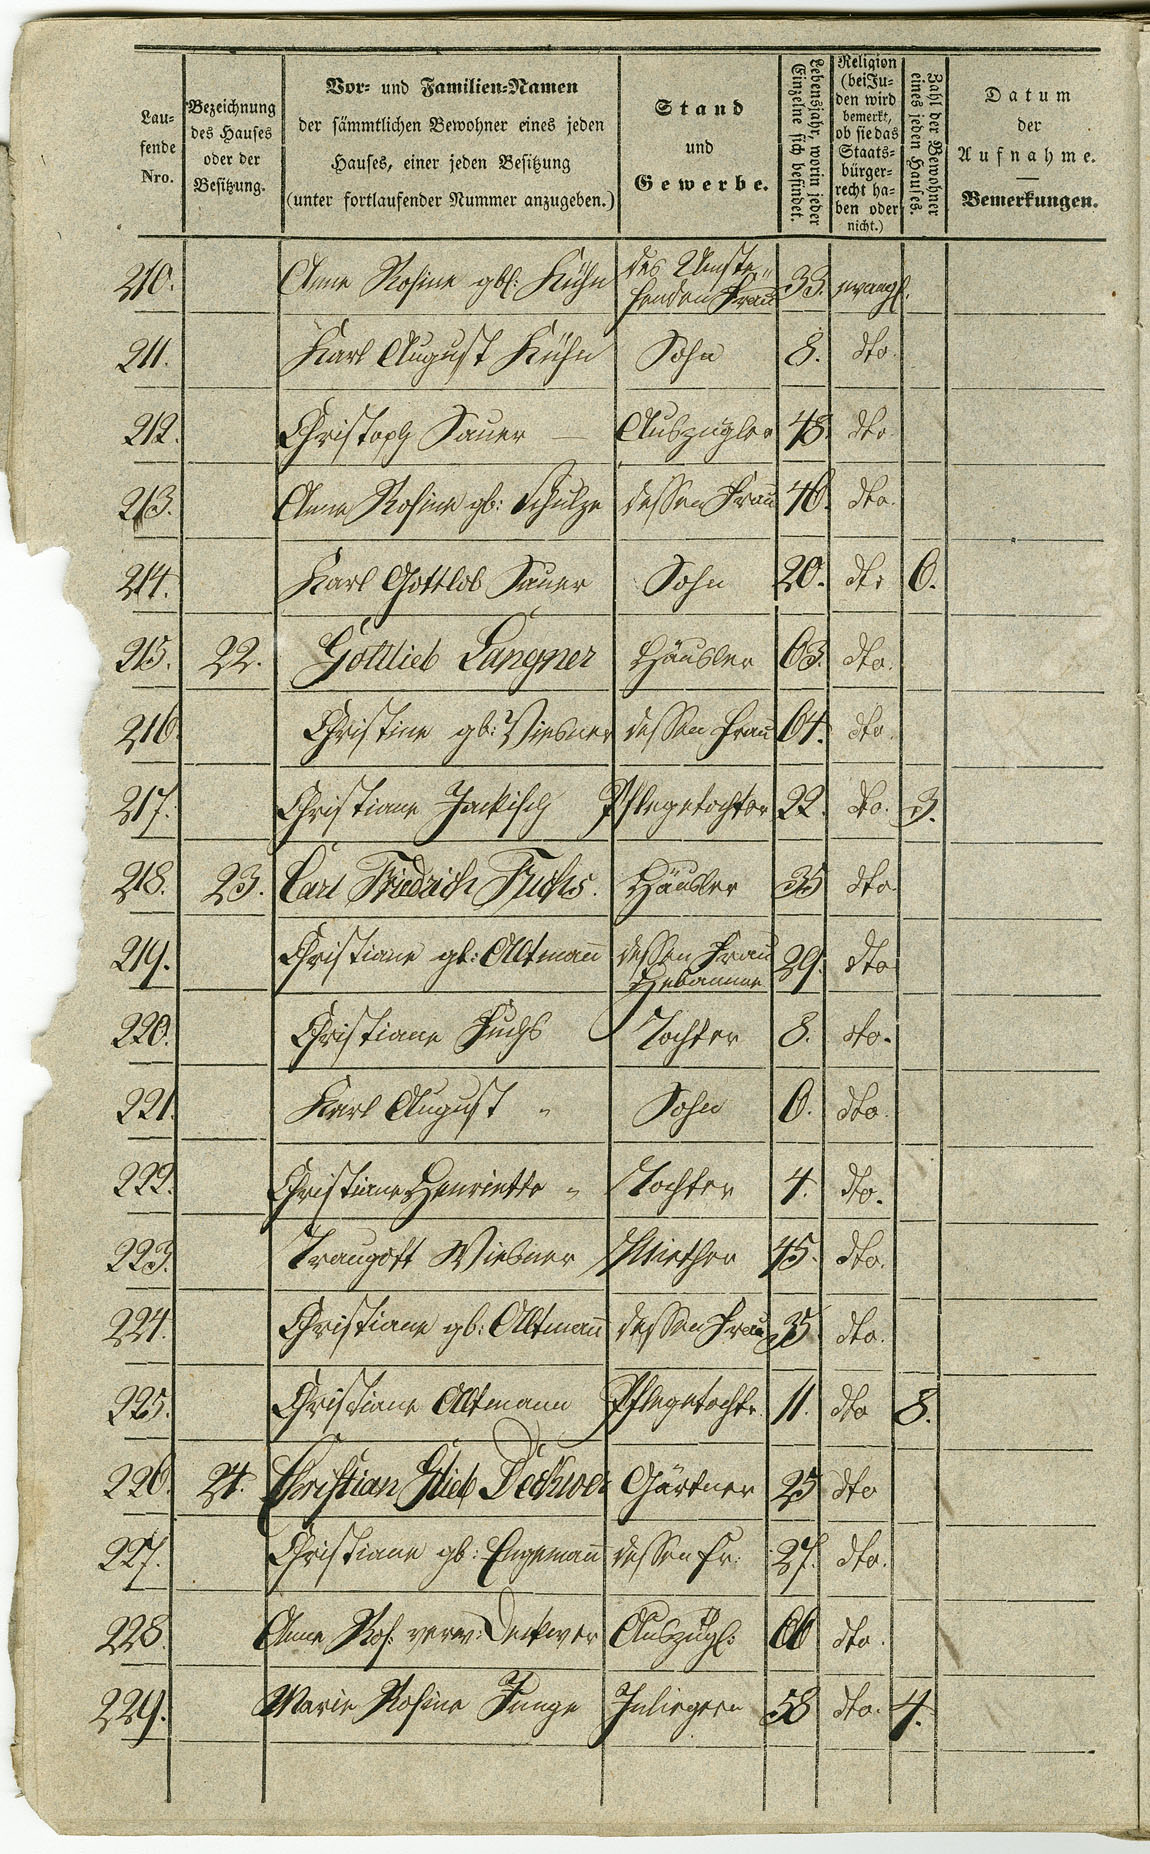 Laufende Nro.
Bezeichnung des Hauses oder der Besitzung.
Vor- und Familien-Namen
der sämmtlichen Bewohner eines jeden
Hauses, einer jeden Besitzung
(unter fortlaufender Nummer anzugeben.)
Stand und Gewerbe.
Lebensjahr, worin jeder Einzelne sich befindet.
Religion (bei Juden wird bemerkt, ob sie das Staatsbürgerrecht haben oder nicht.)
Zahl der Bewohner eines jeden Hauses.
Datum der Aufnahme.
Bemerkungen.
210. Anne Rosine gb: Kühn des Umstehenden Frau 33. evangl.
211. Karl August Kühn Sohn 8. dto.
212. Christoph Sauer — Auszügler 48. dto.
213. Anne Rosine gb: Schulze dessen Frau 46. dto.
214. Karl Gottlob Sauer Sohn 20. dto 6.
215. 22. Gottlieb Langner Häusler 63. dto.
216. Christine gb: Wiesner dessen Frau 64. dto.
217. Christiane Jackisch Pflegetochter 22. dto. 3.
218. 23. Carl Friedrich Fuchs. Häusler 35 dto
219. Christiane gb: Altmann dessen Frau Hebamme 29. dto
220. Christiane Fuchs Tochter 8. dto.
221. Karl August " Sohn 6. dto
222. Christiane Henriette " Tochter 4. dto.
223. Traugott Wiesner Miether 45. dto.
224. Christiane gb: Altmann dessen Frau 35 dto.
225. Christiane Altmann Pflegetocht. 11. dto 8.
226. 24. Christian Glieb Deckwer Gärtner 25 dto
227. Christiane gb: Engemann dessen Fr: 27. dto.
228. Anne Ros. verw: Deckwer Auszügl: 66 dto.
229. Marie Rosine Junge 58 dto. 4.